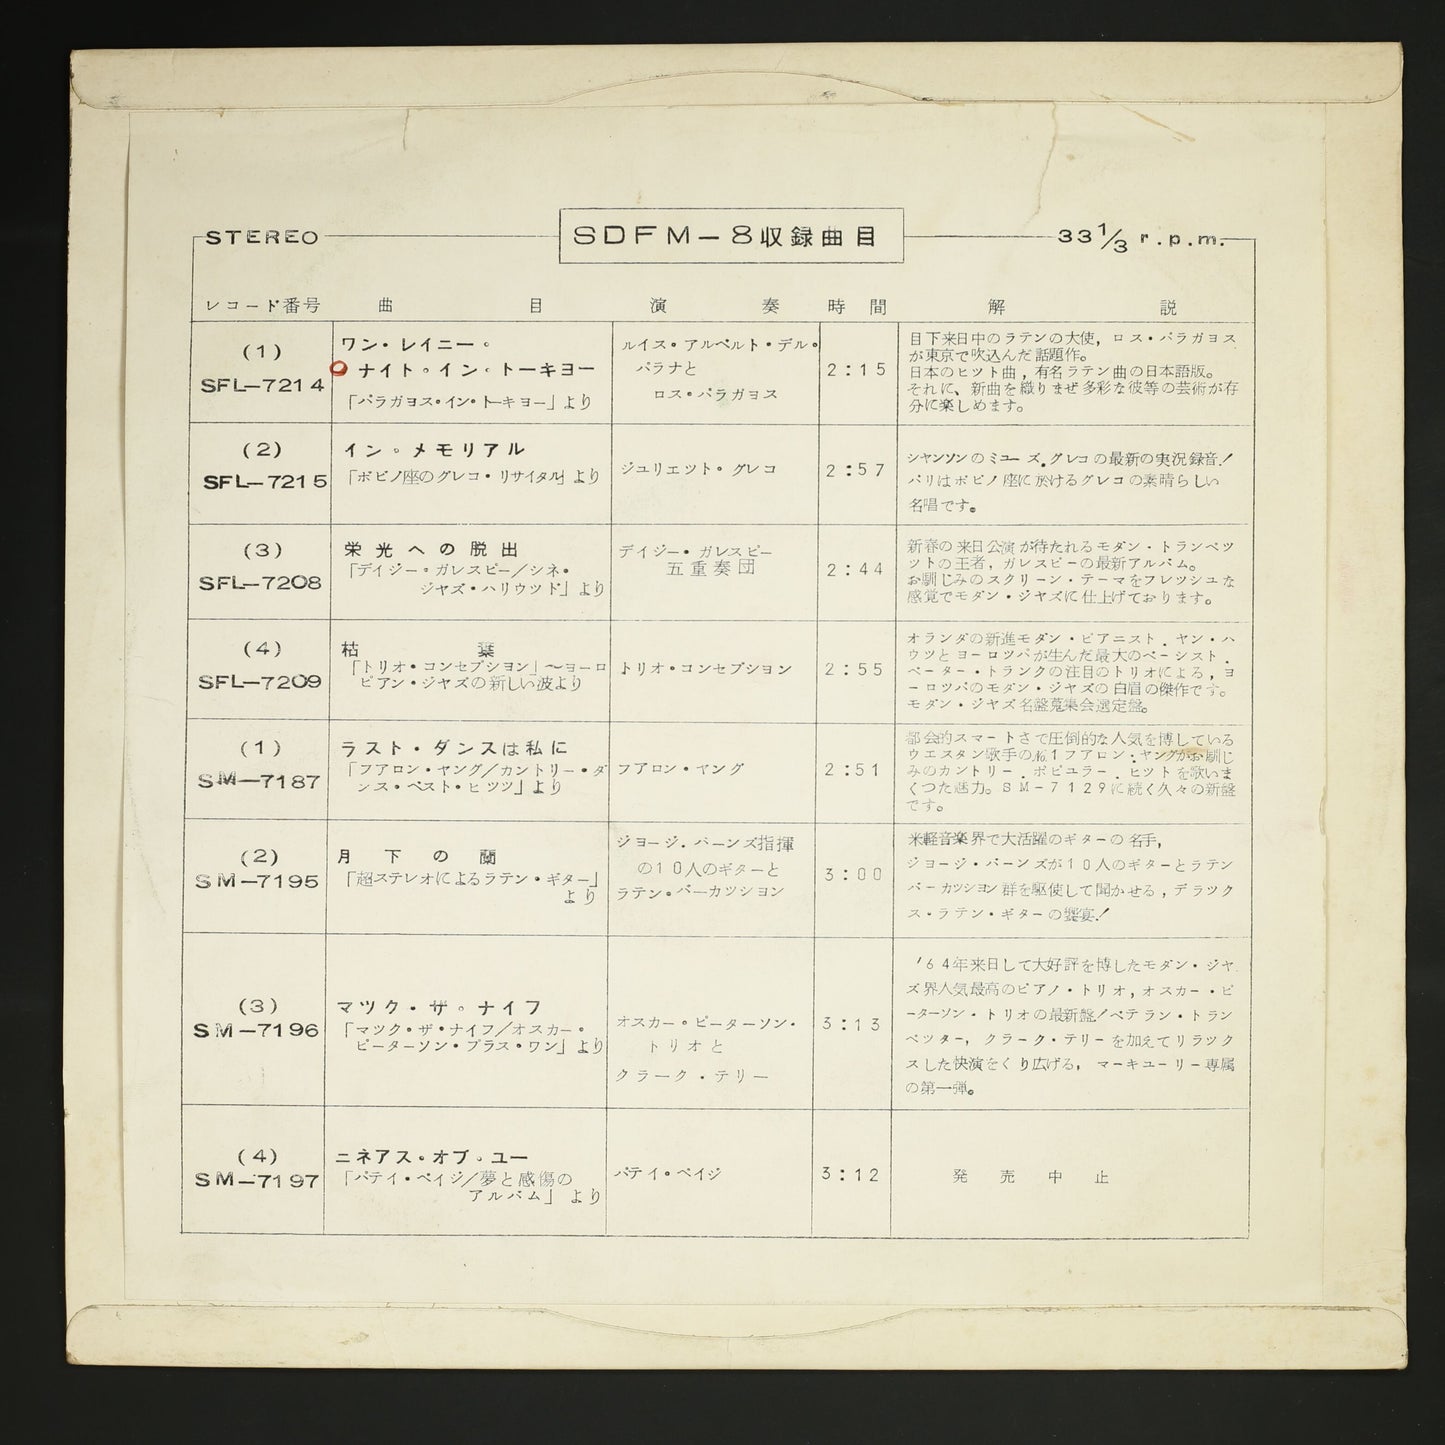 STEREO
SDFM-8収録曲目
33 1/3 r.p.m.
レコード番号 曲目 演奏 時間 解説
(1)
SFL-7214
ワン・レイニー・
ナイト・イン・トーキヨー
「パラガヨス・イン・トーキヨー」より
ルイス・アルベルト・デル・
パラナと
ロス・パラガヨス
2:15
目下来日中のラテンの大使，ロス・パラガヨス
が東京で吹込んだ話題作。
日本のヒツト曲，有名ラテン曲の日本語版。
それに、新曲を織りまぜ多彩な彼等の芸術が存
分に楽しめます。
(2)
SFL-7215
イン・メモリアル
「ボビノ座のグレコ・リサイタル」より
ジユリエツト・グレコ
2:57
シヤンソンのミユーズ.グレコの最新の実況録音!
パリはボビノ座に於けるグレコの素晴らしい
名唱です。
(3)
SFL-7208
栄光への脱出
「デイジー・ガレスピー/シネ・
ジヤズ・ハリウツド」より
デイジー・ガレスピー
五重奏団
2:44
新春の来日公演が待たれるモダン・トランペツ
ツトの王者，ガレスピーの最新アルバム。
お馴じみのスクリーン・テーマをフレツシユな
感覚でモダン・ジヤズに仕上げております。
(4)
SFL-7209
枯葉
「トリオ・コンセプシヨン」〜ヨーロ
ピアン・ジヤズの新しい波より
トリオ・コンセプシヨン
2:55
オランダの新進モダン・ピアニスト．ヤン・ハ
ウツとヨーロツパが生んだ最大のベーシスト．
ペーター・トランクの注目のトリオによる，ヨ
ーロツパのモダン・ジヤズの白眉の傑作です。
モダン・ジヤズ名盤蒐集会選定盤。
(1)
SM-7187
ラスト・ダンスは私に
「フアロン・ヤング/カントリー・ダ
ンス・ベスト・ヒツツ」より
フアロン・ヤング
2:51
都会的スマートさで圧倒的な人気を博している
ウエスタン歌手の№1フアロン・ヤングがお馴じ
みのカントリー．ポピユラー．ヒツトを歌いま
くつた魅力。SM-7129に続く久々の新盤
です。
(2)
SM-7195
月下の蘭
「超ステレオによるラテン・ギター」
より
ジヨージ．バーンズ指揮
の10人のギターと
ラテン・パーカツシヨン
3:00
米軽音楽界で大活躍のギターの名手，
ジヨージ・バーンズが10人のギターとラテン
パーカツシヨン群を駆使して聞かせる，デラツク
ス・ラテン・ギターの饗宴!
(3)
SM-7196
マツク・ザ・ナイフ
「マツク・ザ・ナイフ/オスカー・
ピーターソン・プラス・ワン」より
オスカー・ピーターソン・
トリオと
クラーク・テリー
3:13
'64年来日して大好評を博したモダン・ジヤ
ズ界人気最高のピアノ・トリオ，オスカー・ピ
ーターソン・トリオの最新盤!ベテラン・トラン
ペツター，クラーク・テリーを加えてリラツク
スした快演をくり広げる，マーキユーリー専属
の第一弾。
(4)
SM-7197
ニネアス・オブ・ユー
「パテイ・ペイジ/夢と感傷の
アルバム」より
パテイ・ペイジ
3:12
発売中止